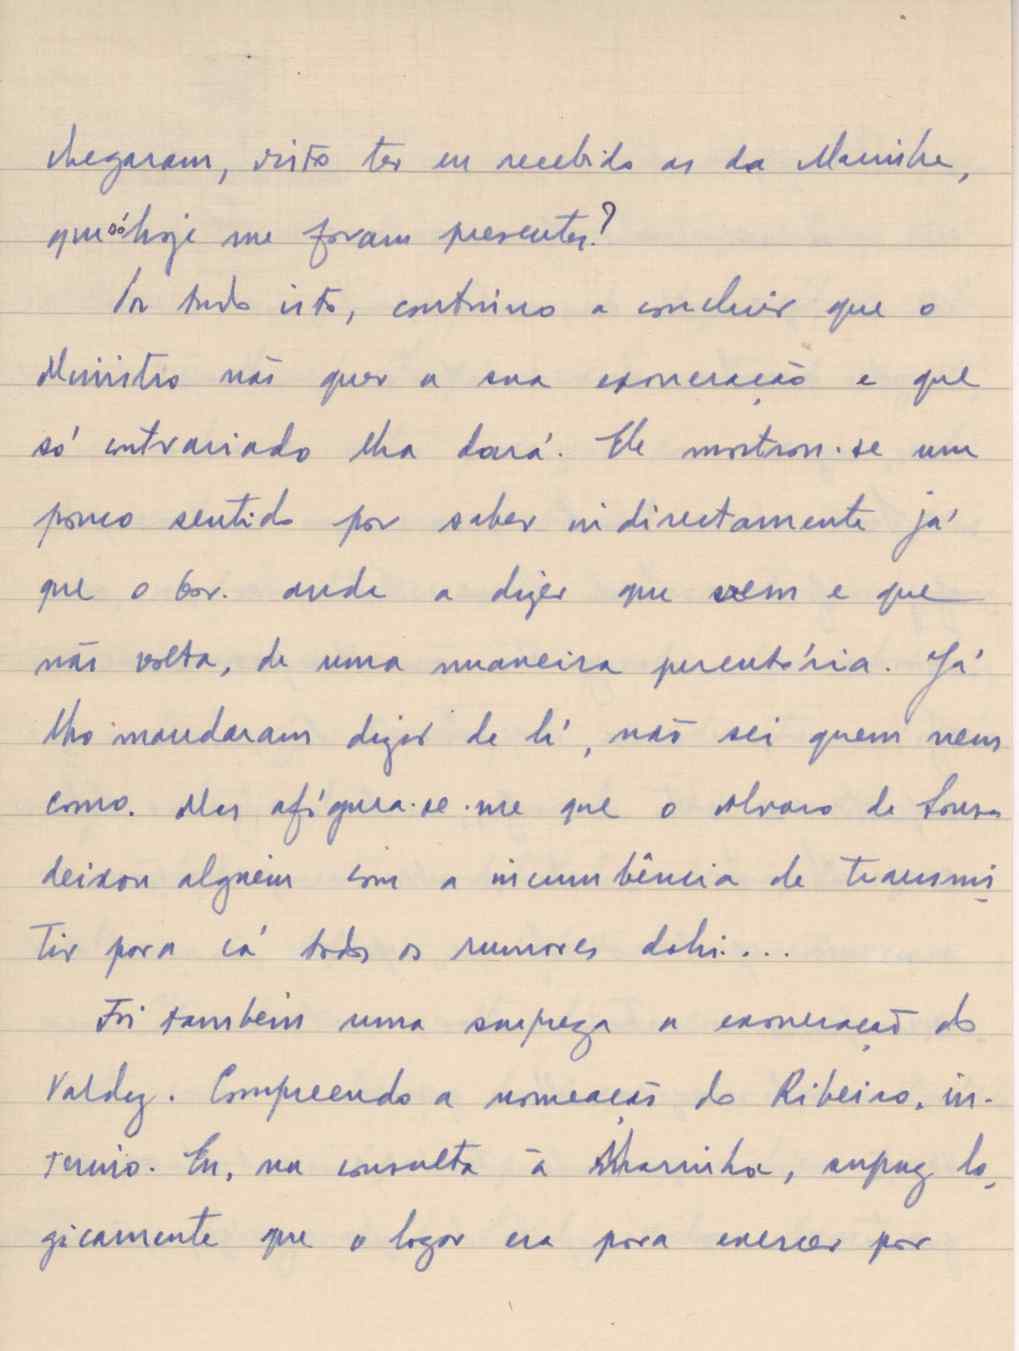 chegaram, visto ter eu recebido as da Marinha,
que só hoje me foram presentes?
Por tudo isto, continuo a concluir que o
Ministro não quer a sua exoneração e que
só contrariado lha dará. Ele mostrou-se um
pouco sentido por saber indirectamente já
que o Gov. anda a dizer que vem e que
não volta, de uma maneira perentória. Já
lho mandaram dizer de lá, não sei quem nem
como. Mas afigura-se-me que o Alvaro de Sousa
deixou alguém com a incumbência de transmi-
tir para cá todos os rumores dahi....
Foi também uma surpreza a exoneração do
Valdez. Compreendo a nomeação do Ribeiro, in-
terino. Eu, na consulta à Marinha, supuz lo-
gicamente que o lugar era para exercer por